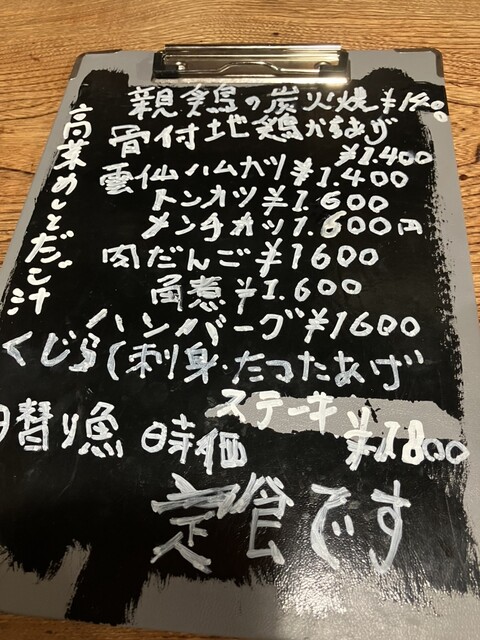 親鶏の炭火焼¥1400
骨付地鶏からあげ
¥1.400
雲仙ハムカツ¥1.400
トンカツ¥1.600
メンチカツ1.600円
肉だんご¥1600
角煮¥1.600
ハンバーグ¥1600
くじら(刺身・たつたあげ
ステーキ
¥1800
日替り魚 時価
定食です
高菜めしとだご汁